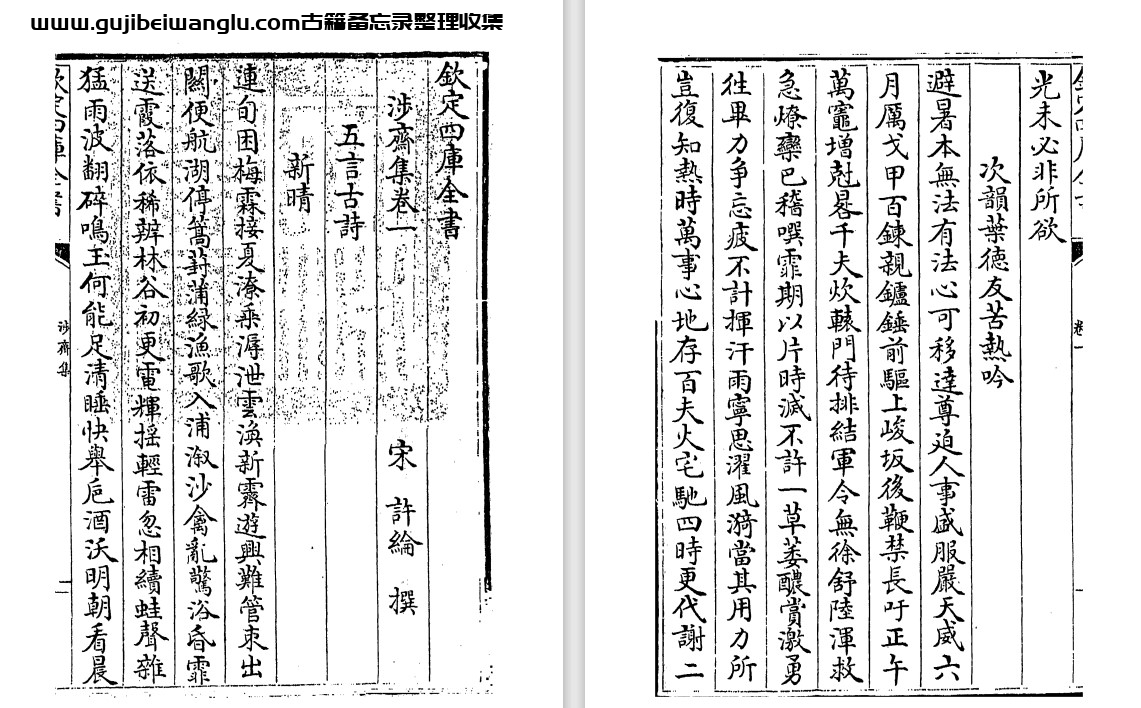 www.gujibeiwanglu.com古籍备忘录整理收集
欽定四庫全書
涉齋集卷一
宋 許綸 撰
五言古詩
新晴
連旬困梅霖接夏潦乘潯泄雲渙新霽遊興難管束出
關便航湖停篙葑蒲綠漁歌入浦溆沙禽亂驚浴昏霏
送霞落依稀辨林谷初更電輝摇輕雷忽相續蛙聲雜
猛雨波翻碎鳴玉何能足清睡快舉卮酒沃明朝看晨
欽定四庫全書
涉齋集
二
卷一
光未必非所欲
次韻葉德友苦熱吟
避暑本無法有法心可移達尊迫人事盛服嚴天威六
月厲戈甲百鍊親鑪錘前驅上峻坂後鞭禁長吁正午
萬竈增尅晷千夫炊轅門待排結軍令無徐舒陸渾救
急燎欒巴稽噀霏期以片時滅不許一草萎醲賞激勇
徃畢力争忘疲不計揮汗雨寧思濯風漪當其用力所
豈復知熱時萬事心地存百夫火宅馳四時更代謝二